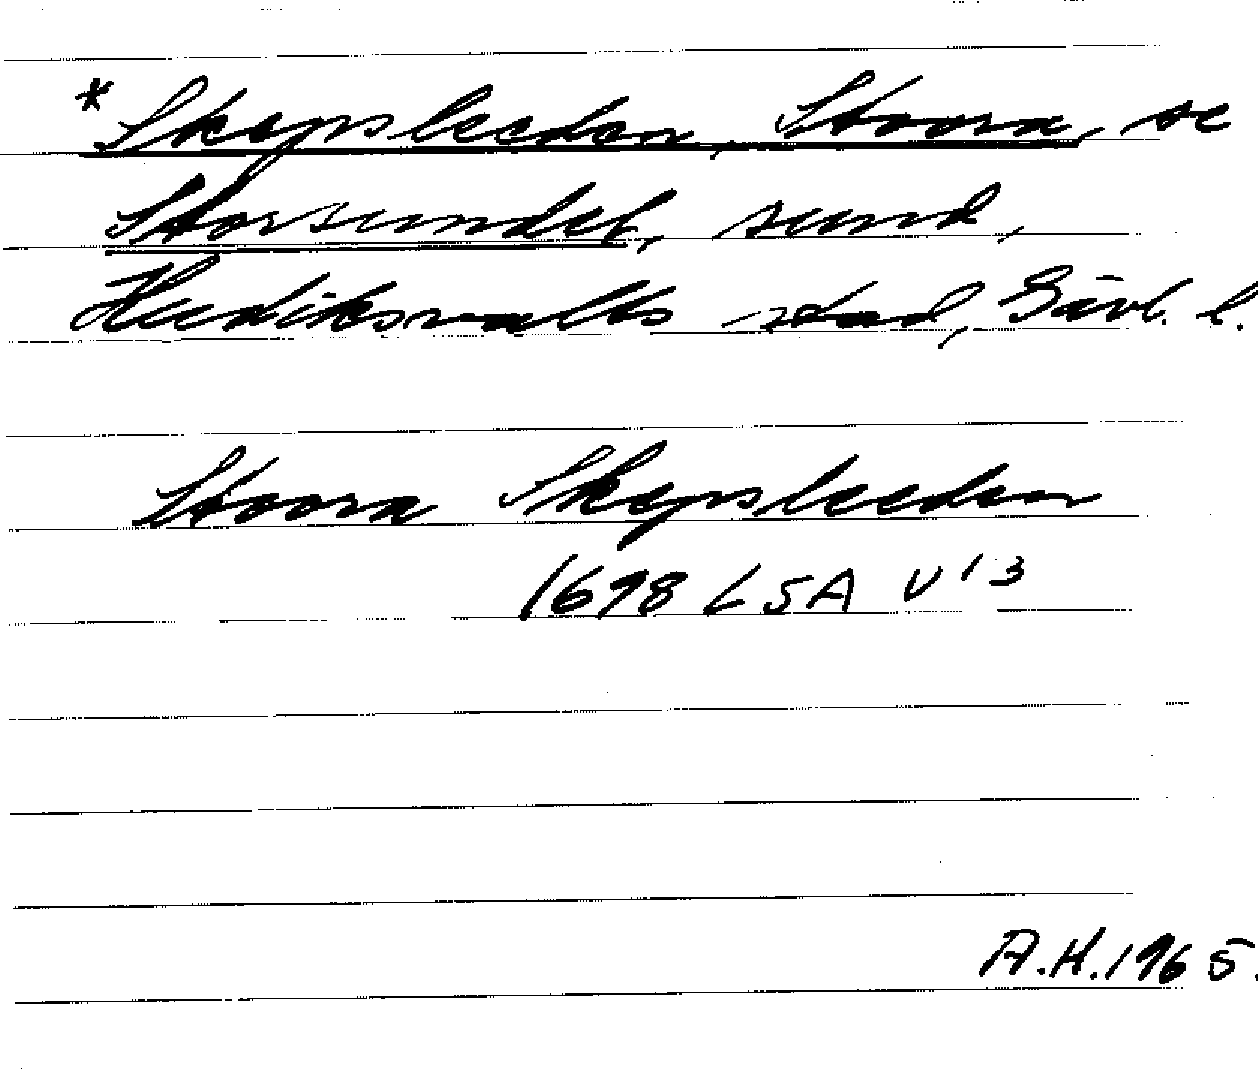 * Skepsleeden, Stoora, se
Storsundet, sund,
Hudiksvalls stad, Gävl. l.
Stoora Skepsleeden
1678 LSA U 13
A.H. 1965.